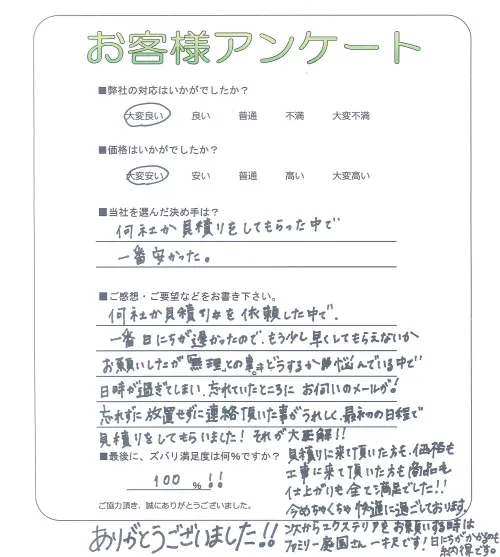 お客様アンケート
■弊社の対応はいかがでしたか？
大変良い 良い 普通 不満 大変不満
■価格はいかがでしたか？
大変安い 安い 普通 高い 大変高い
■当社を選んだ決め手は？
何社か見積りをしてもらった中で
一番安かった。
■ご感想・ご要望などをお書き下さい。
何社か見積りを依頼した中で、
一番日にちが遅かったので、もう少し早くしてもらえないか
お願いしたが無理との事。どうするか悩んでいる中で
日時が過ぎてしまい、忘れていたところにお伺いのメールが！
忘れずに放置せずに連絡頂いた事がうれしく、最初の日程で
見積りをしてもらいました！それが大正解！！
■最後に、ズバリ満足度は何％ですか？
100 %!!
見積りに来て頂いた方も、価格も
工事に来て頂いた方も商品も
仕上がりも全て満足でした!!
今めちゃくちゃ快適に過ごしております。
次からエクステリアをお願いする時は
ファミリー庭園さん一キスです！日にちがかかっても
絶得です
ご協力頂き、誠にありがとうございました。
ありがとうございました!!